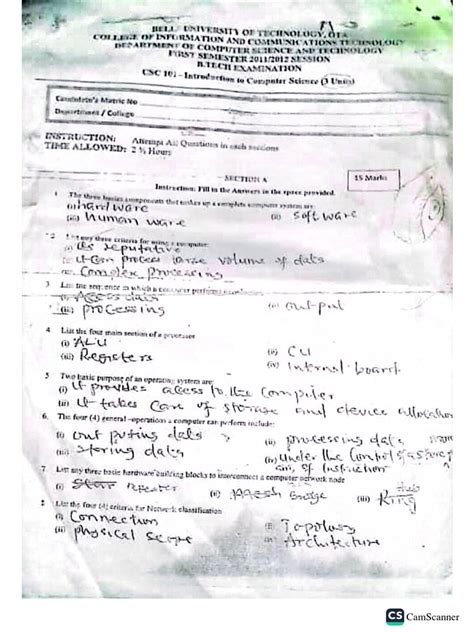 BELLS UNIVERSITY OF TECHNOLOGY, OTA
COLLEGE OF INFORMATION AND COMMUNICATIONS TECHNOLOGY
DEPARTMENT OF COMPUTER SCIENCE AND TECHNOLOGY
FIRST SEMESTER 2011/2012 SESSION
B.TECH EXAMINATION
CSC 101 - Introduction to Computer Science (3 Units)
Candidate's Matric No
Department / College
INSTRUCTION: Attempt All Questions in each sections
TIME ALLOWED: 2 ½ Hours
SECTION A
15 Marks
Instruction: Fill in the Answers in the space provided.
1 The three basics components that makes up a complete computer system are
(i) hard ware (ii) Soft ware
(iii) human ware
2 List any three criteria for using a computer
reputative
(ii) it can process large volume of data
Complex processing
3 List the sequence in which a computer
(i) Access data (ii) output
(iii) processing
4 List the four main section of a processor
(i) ALU (ii) CU
(iii) Registers (iv) Internal board
5 Two basic purpose of an operating system are
(i) it provides access to the computer
(ii) it takes care of storage and device allocation
6. The four (4) general-operations a computer can perform include:
(i) out puting data (ii) processing data
(iii) storing data (iv) under the control of a
of Instruction
7 List any three basic hardware building blocks to interconnect a computer network node
(i) repeater (ii) Bridge (iii)
List the four (4) criteria for Network classification
(i) Connection Topology
(ii) physical scope Architecture
CS CamScanner